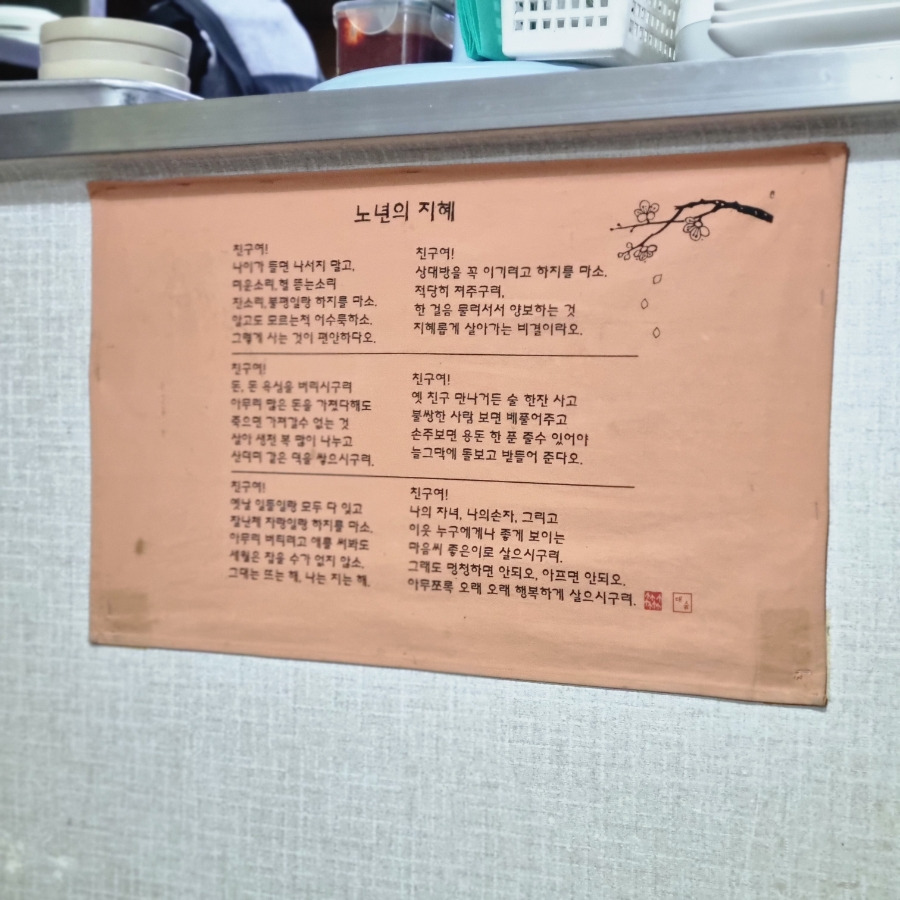 노년의 지혜
친구여!
나이가 들면 나서지 말고,
미운소리, 헐 뜯는소리
잔소리, 불평일랑 하지를 마소.
알고도 모르는척 어수룩하소.
그렇게 사는 것이 편안하다오.
친구여!
상대방을 꼭 이기려고 하지를 마소.
적당히 져주구려,
한 걸음 물러서서 양보하는 것
지혜롭게 살아가는 비결이라오.
친구여!
돈, 돈 욕심을 버리시구려
아무리 많은 돈을 가졌다해도
죽으면 가져갈수 없는 것
살아 생전 복 많이 나누고
산더미 같은 덕을 쌓으시구려.
친구여!
옛 친구 만나거든 술 한잔 사고
불쌍한 사람 보면 베풀어주고
손주보면 용돈 한 푼 줄수 있어야
늘그막에 돌보고 받들어 준다오.
친구여!
옛날 일들일랑 모두 다 잊고
잘난체 자랑일랑 하지를 마소.
아무리 버티려고 애를 써봐도
세월은 잡을 수가 없지 않소.
그대는 뜨는 해, 나는 지는 해.
친구여!
나의 자녀, 나의손자, 그리고
이웃 누구에게나 좋게 보이는
마음씨 좋은이로 살으시구려.
그래도 멍청하면 안되오, 아프면 안되오.
아무쪼록 오래 오래 행복하게 살으시구려.